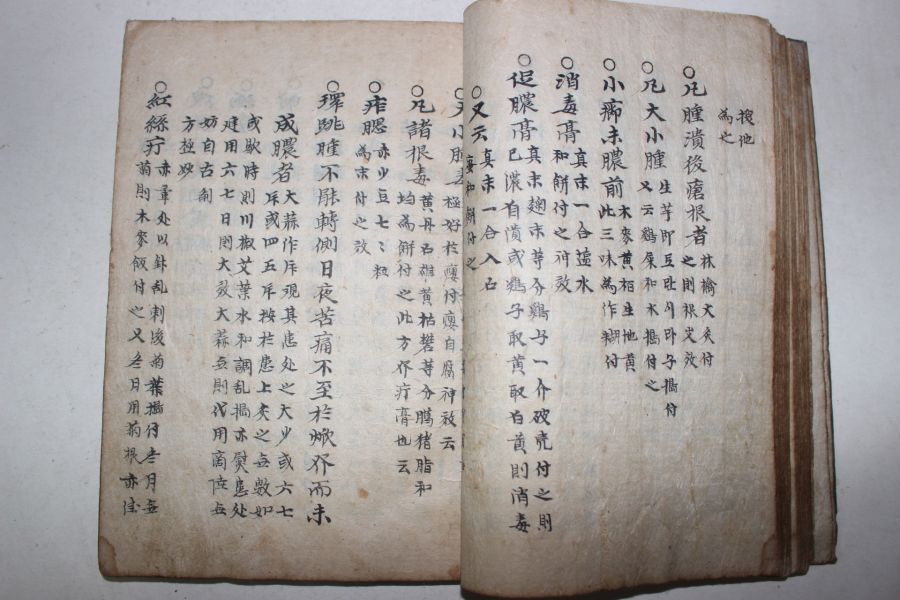 搜池
為之
○凡腫潰後瘡根者 林檎大灸付
之則根定效
○凡大小腫 生芋即豆란 搗付
又云鷄屎和木搗付之
○小癤未膿前 木麥黃栢生地黃
此三味為作糊付
○消毒膏 真末一合塩水
和餠付之可效
○促膿膏 真末麯末等分鷄子一介破売付之則
已濃自潰或鷄子取黃取白黃則消毒
○又云 真末一合入占
和餠付之
極好於瘇付瘇自腐神效云
○凡諸根毒 黃丹石雄黃枯礬等分臘猪脂和
均為餠付之此方介疔膏也云
○痄腮 赤少豆七七粒
為末付之效
○環跳腫不能轉側日夜苦痛不至於焮介而未
成膿者 大蒜作片現其患處之大少或六七
片或四五片按於患上灸之無數如
或歇時則川椒艾葉水和調乱搗亦熨患處
連用六七日則大效大蒜無則代用商陸無
妨自古劑
方極妙
○紅絲疔 亦辜處以針乱刺後菊葉搗付冬月無
菊則木麥飯付之又冬月用菊根亦佳